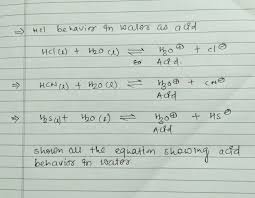 ⇒ HCl behavior in water as acid
HCl(l) + H2O(l) ⇌ H3O⊕ + Cl⊖
Acid
⇒ HCN(l) + H2O(l) ⇌ H3O⊕ + CN⊖
Acid
⇒ H2S(l) + H2O(l) ⇌ H3O⊕ + HS⊖
Acid
shown all the equation showing acid
behavior in water